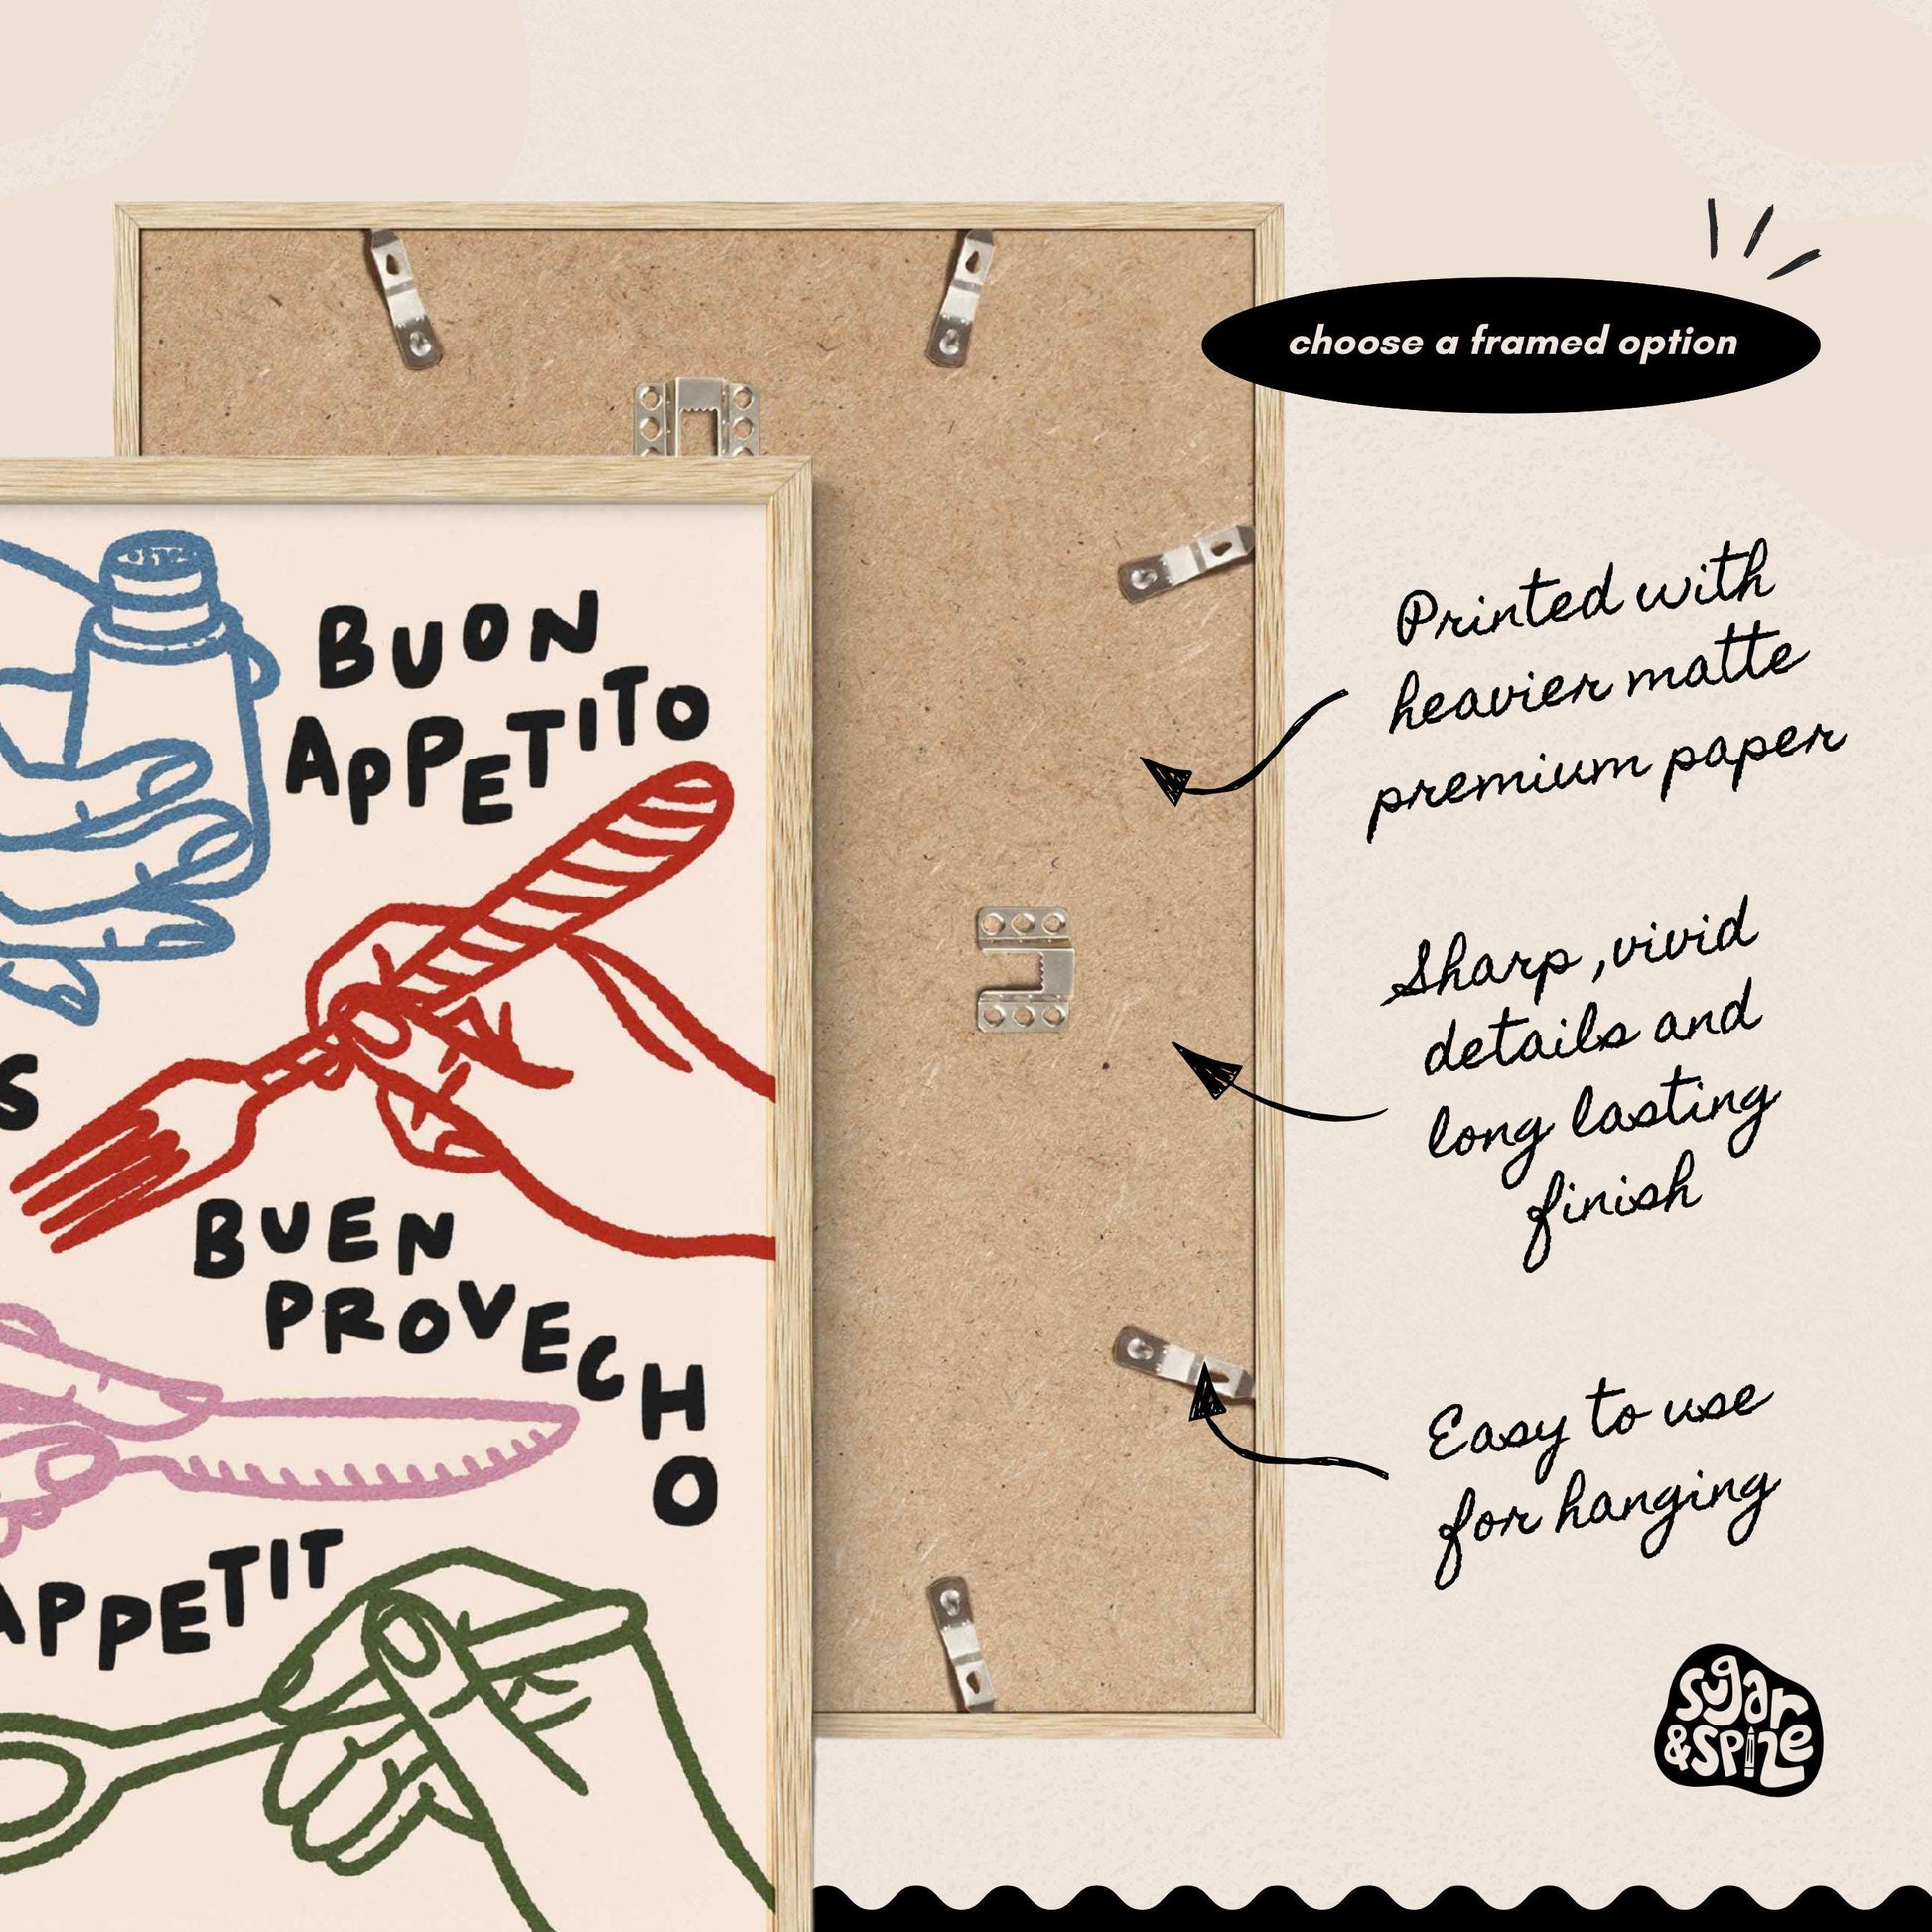 choose a framed option
Printed with
heavier matte
premium paper
Sharp, vivid
details and
long lasting
finish
Easy to use
for hanging
BUON
APPETITO
S
BUEN
PROVECHO
APPETIT
sugar
&SPIZE